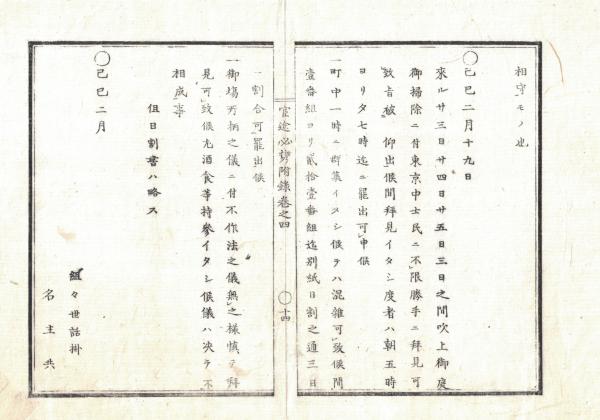 相守モノ也
〇己巳二月十九日
來ル廿三日廿四日廿五日三日之間吹上御庭
御掃除ニ付東京中士民ニ不限勝手ニ拜見可
致旨被 仰出候間拜見イタシ度者ハ朝五時
ヨリ夕七時迄ニ罷出可申候
一町中一時ニ群集イタシ候テハ混雜可致候間
壹番組ヨリ貳拾壹番組迄別紙日割之通三日
官途必携附錄卷之四
〇十四
ニ割合可罷出候
一御場所柄之儀ニ付不作法之儀無之樣慎テ拜
見可致候尤酒食等持參イタシ候儀ハ决テ不
相成事
但日割書ハ略ス
〇己巳二月
組々世話掛
名主共